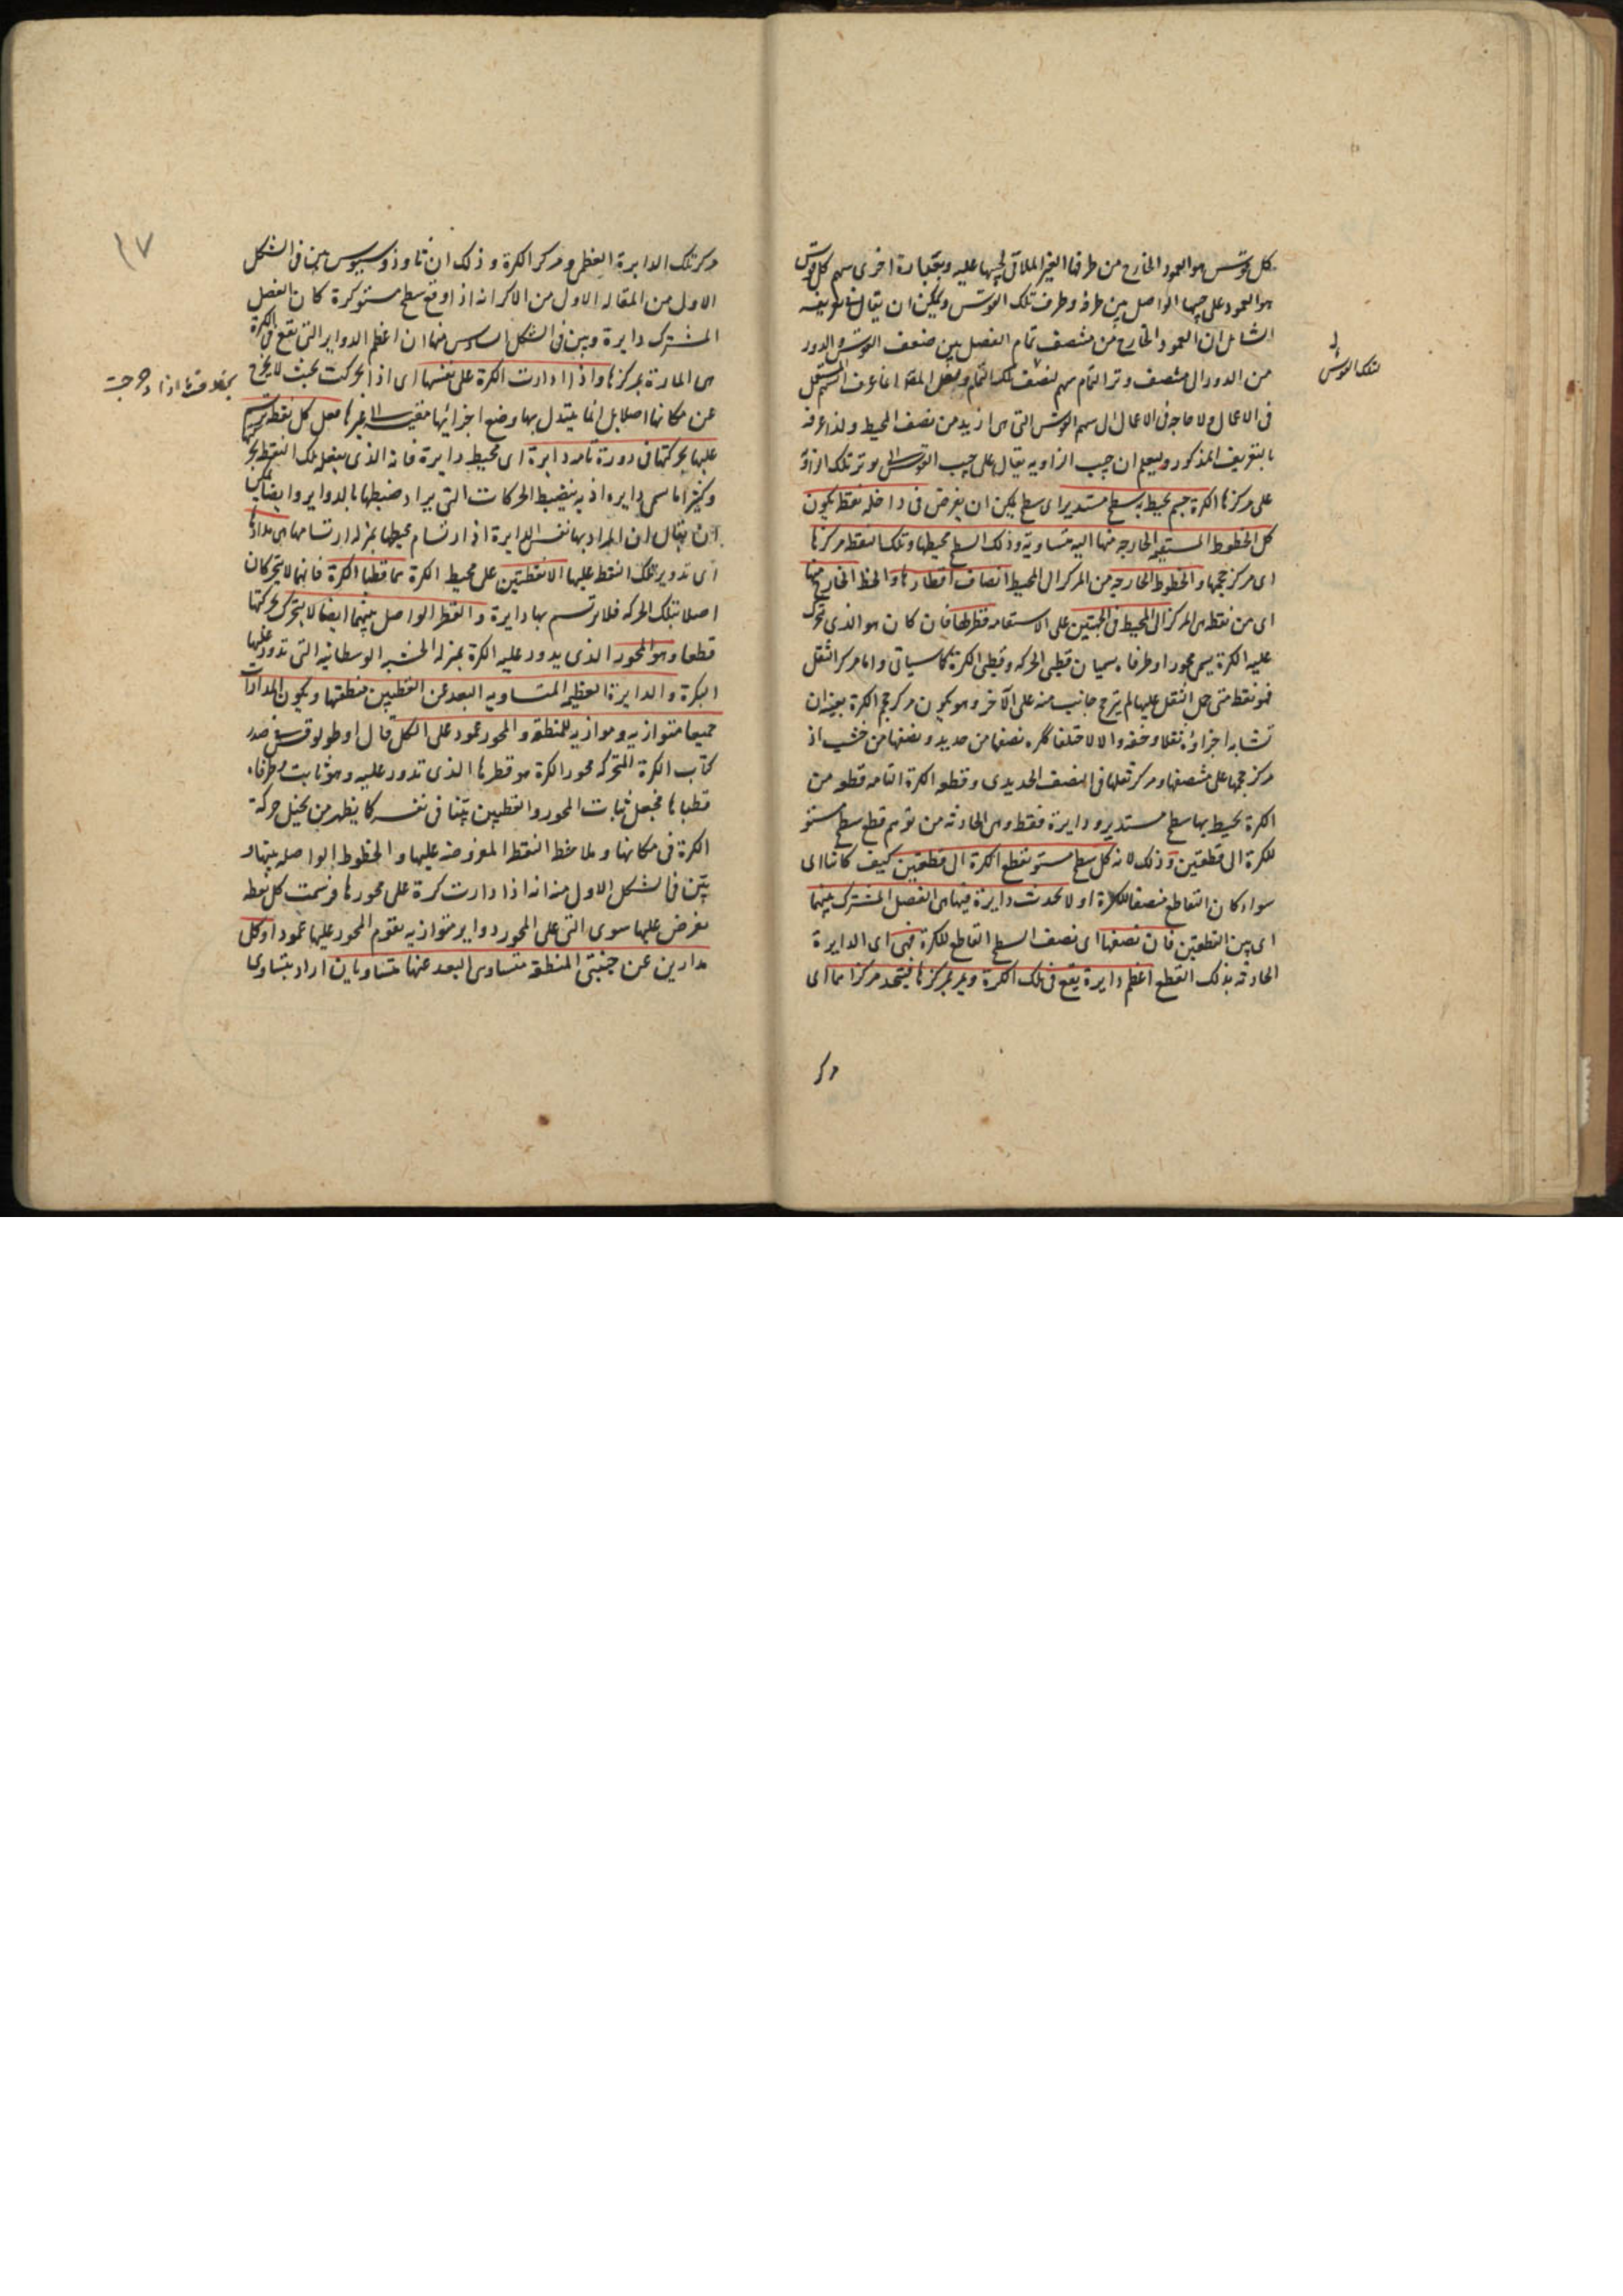 كل قوس هو العمود الخارج من طرفها الغير الملاقى لجيبها عليه وبعبارة اخرى سهم كل قوس
هو العمود على جيبها الواصل بين طرفه وطرف تلك القوس ويمكن ان يقال فى تعريفه
الشامل ان العمود الخارج من منتصف تمام الفصل بين ضعف القوس والدور
من الدور الى منتصف وتر التمام سهم لنصف ذلك التمام
فى الاعمال ولا حاجة فى الاعمال الى سهم القوس التى هى ازيد من نصف المحيط ولذا عرفه
بالتعريف المذكور وليعلم ان جيب الزاويه يقال على جيب القوس التى يوتر تلك الزاوية
على مركزها الكرة جسم يحيط به سطح مستدير اى سطح يمكن ان يفرض فى داخله نقطه يكون
كل الخطوط المستقيمه الخارجه منها اليه متساويه وذلك السطح محيطها وتلك النقطه مركزها
اى مركز حجمها والخطوط الخارجه من المركز الى المحيط انصاف اقطارها والخط الخارج منها
اى من نقطه هى المركز الى المحيط فى الجهتين على الاستقامه قطرها فان كان هو الذى تتحرك
عليه الكرة يسمى محورا وطرفاه يسميان قطبى الحركه وقطبى الكرة كما سياتى واما مركز الثقل
فهو نقطه متى حمل الثقل عليها لم يترجح جانب منه على الآخر وهو يكون مركز حجم الكرة بعينه ان
تشابه اجزاؤه ثقلا وخفه والا لاختلفا ككره نصفها من حديد ونصفها من خشب اذ
مركز حجمها على منتصفها ومركز ثقلها فى النصف الحديدى وقطعه الكرة التامه قطعه من
الكرة يحيط بها سطح مستدير ودايرة فقط وهى الحادثه من توهم قطع سطح مستو
للكرة الى قطعتين وذلك لانه كل سطح مستو يقطع الكرة الى قطعتين كيف كانتا اى
سواء كان القاطع منصفا للكرة او لا يحدث دايرة فيها هى الفصل المشترك بينهما
اى بين القطعتين فان نصفها اى نصف السطح القاطع للكرة فهى اى الدايرة
الحادثه بذلك القطع اعظم دايرة يقع فى تلك الكرة ويمر بمركزها فيتحد مركزاهما اى
مركز
لتلك القوس
مركز تلك الدايرة العظمى ومركز الكرة وذلك ان ثاوذوسيوس بين فى الشكل
الاول من المقاله الاولى من الاكر انه اذا وقع سطح مستو كرة كان الفصل
المشترك دايرة وبين فى الشكل السادس منها ان اعظم الدواير التى تقع فى الكرة
هى المارة بمركزها واذا دارت الكرة على نفسها اى اذا تحركت بحيث لا يخرج
عن مكانها اصلا بل انما يتبدل بها وضع اجزائها مقيسة الى غيرها فعل كل نقطه
عليها بحركتها فى دورة تامه دايرة اى محيط دايرة فانه الذى يفعله تلك النقطه بحركتها
وكثيرا ما سمى دايره اذ به ينضبط الحركات التى يراد ضبطها بالدواير وايضا
ان يقال ان المراد بها نفس الدايرة اذ ارتسام محيطها بمنزله ارتسامها هى مدارها
اى تدوير تلك النقطه عليها الا نقطتين على محيط الكرة هما قطبا الكرة فانهما لا يتحركان
اصلا بتلك الحركه فلا يرتسم بها دايرة والقطر الواصل بينهما ايضا لا يتحرك بحركتها
قطعا وهو المحور الذى يدور عليه الكرة بمنزله الخشبه الوسطانيه التى تدور عليها
البكرة والدايرة العظيمه المتساويه البعد عن القطبين منطقتها ويكون المدارات
جميعا متوازيه وموازيه للمنطقه والمحور عمود على الكل قال اوطولوقس فى صدر
كتاب الكرة المتحركه محور الكرة هو قطرها الذى تدور عليه وهو ثابت وطرفاه
قطباها فجعل ثبات المحور والقطبين بينا فى نفسه كما يظهر من تخيل حركة
الكرة فى مكانها وملاحظه النقط المفروضه عليها والخطوط الواصله بينها و
بين فى الشكل الاول منه انه اذا دارت كرة على محورها فرسمت كل نقطه
تفرض عليها سوى التى على المحور دواير متوازيه يقوم المحور عليها عمودا وكل
مدارين عن جنبتى المنطقه متساوى البعد عنها متساويان اراد بتساوى
بخلاف ما اذا دحرجت
١٧